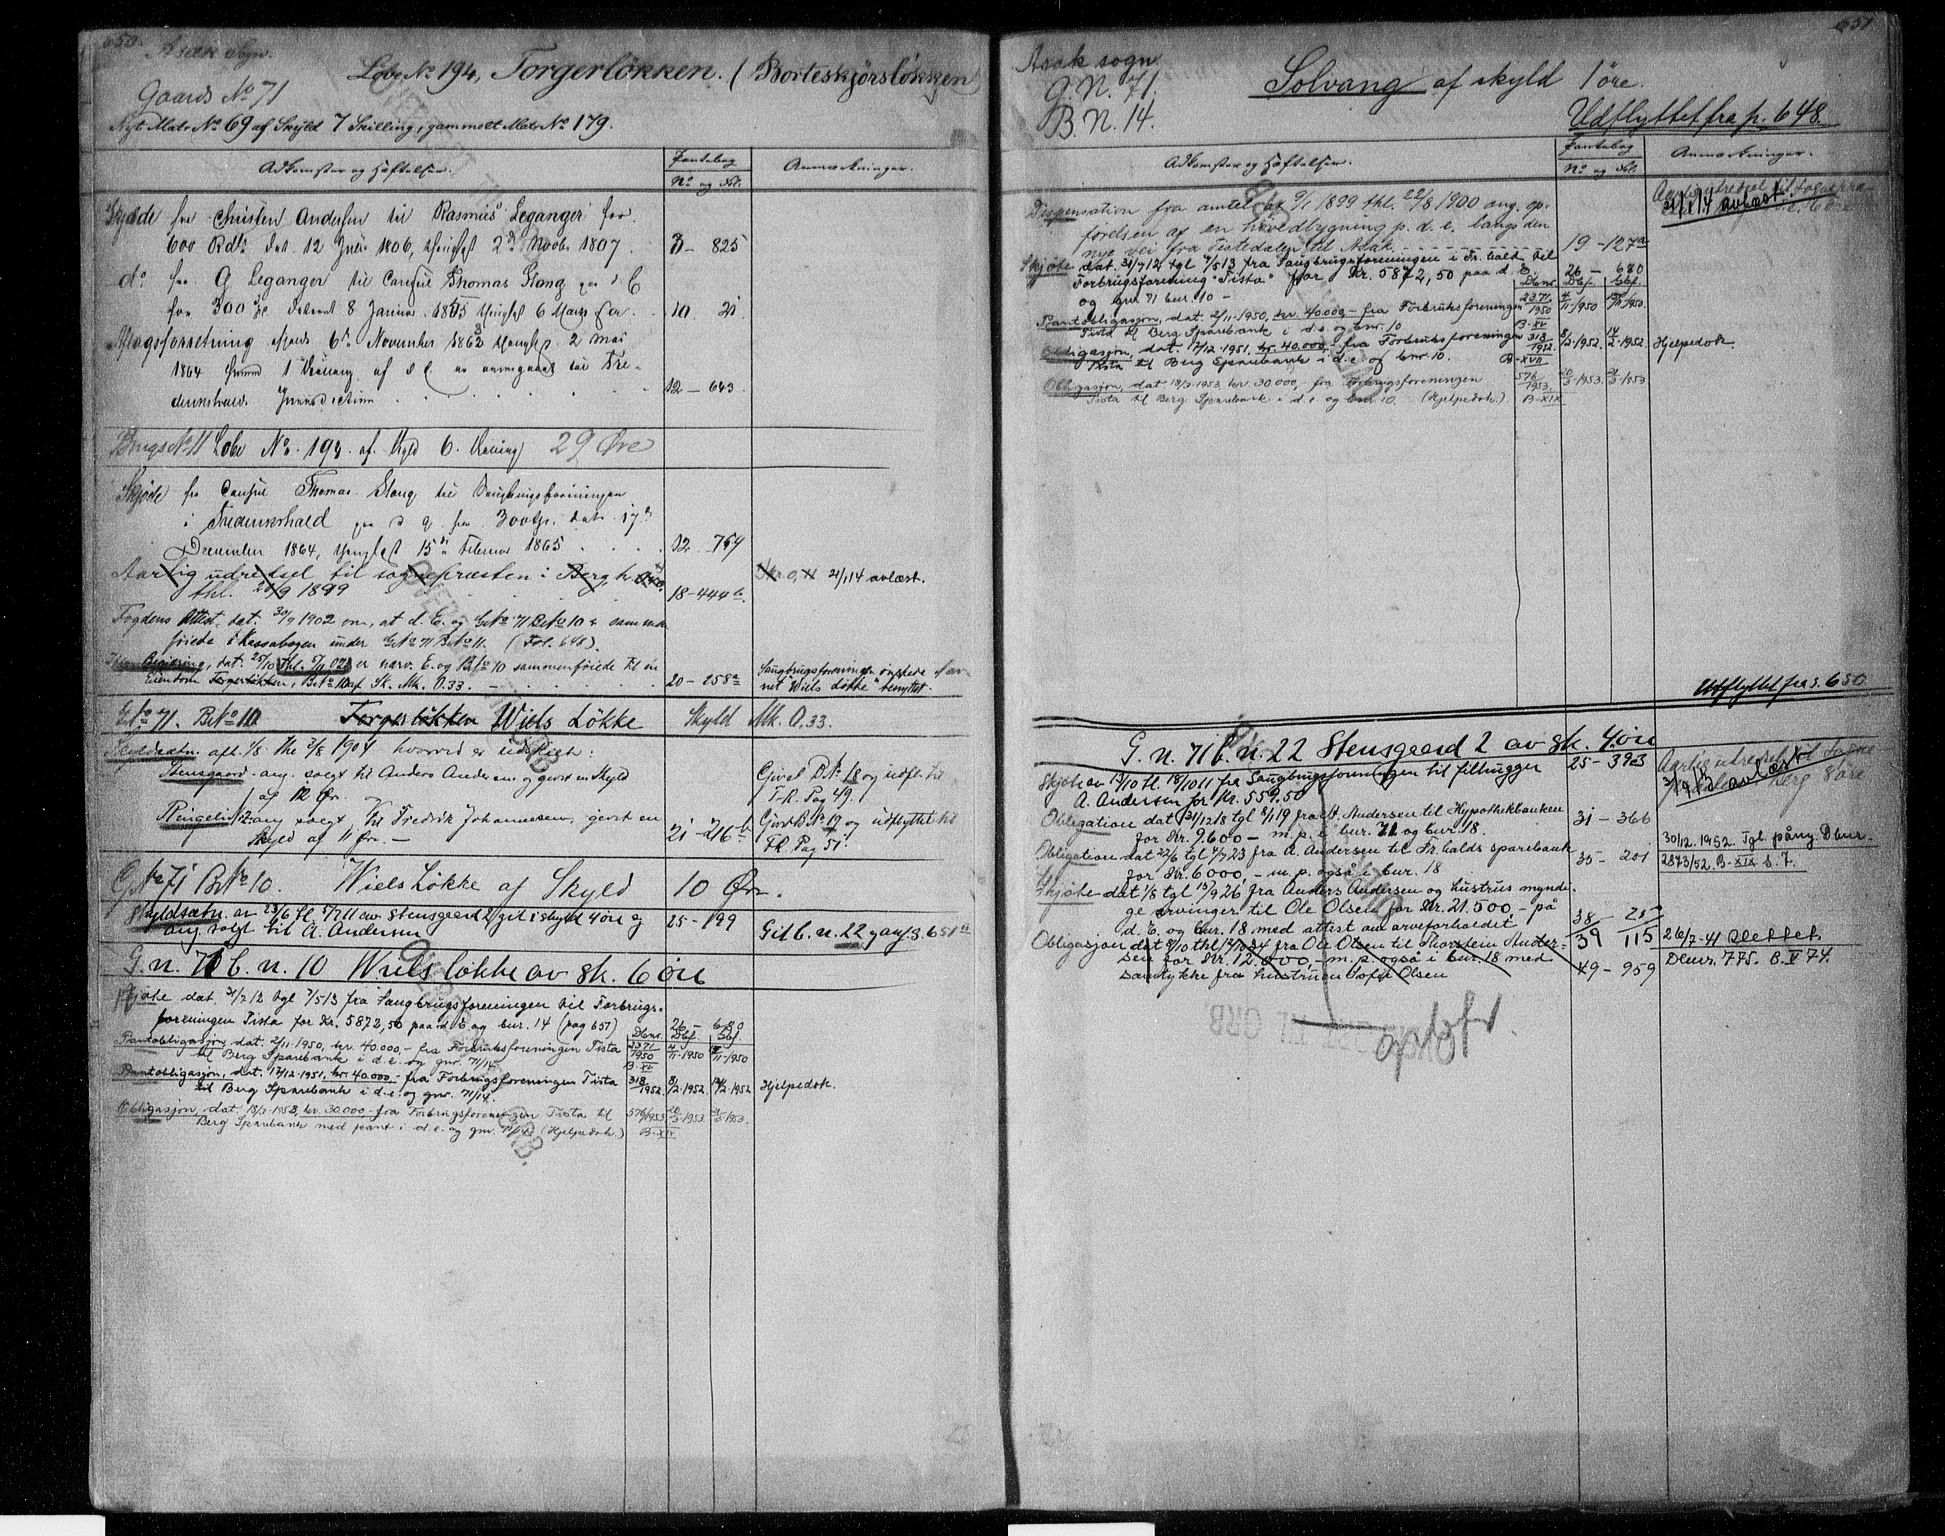 650.
Asak Sogn.
Løbe No 194, Torgerløkken. (Borteskjørsløkken
Gaards No 71
Nyt Matr No 69 af Skyld 7 Skilling, gammelt Matr No 179.
Adkomster og Hæftelser. Pantebog Anmærkninger.
No og Fol.
Skjøde fra Christen Andersen til Rasmus Leganger for
600 Rdlr dat 12 Juli 1806, thinglæst 2d Novbr. 1807. 3 - 825
do fra G Leganger til Consul Thomas Stang paa d. E
for 300 dateret 8 Januar 1855 thinglæst 6 Marts s.a. 10 21
Aftagsforretning afholdt 6te November 1863 thinglæst 2 Mai
1864 1 Skilling af d. E.
Jurisdiction 12 - 643
Brugs No 11 Løbe No. 194. af Skyld 6. Skilling 29 Øre
Skjøde fra Consul Thomas Stang til Saugbrugsforeningen
i Fredrikshald paa d. E. for 300 dat. 17de
December 1864, thinglæst 15de Februar 1865 12 - 754
Aarlig udredsel til sognepræsten i Berg kr. 0,40
thl. 20/9 1899 18 - 444 b. 21/1 14 avlæst.
Fogdens Attest, dat. 30/9 1902 om, at d. E. og GNo 71 BNo 10 er sammen-
føiede i Kassabogen under GNo 71 BNo 11. (Fol. 648).
Begjæring, dat. 25/10 thl. 5/11 02 er nærv. E. og BNo 10 sammenføiede til én
Eiendom Torgerløkken, BNo 10 af Sk. Mk. 0.33. 20 - 258 a
Saugbrugsforeningen ønskede nav-
net "Wiels Løkke" benyttet.
GNo 71. BNo 10 Torgerløkken Wiels Løkke Skyld Mk. 0,33.
Skyldsætn. afh. 1/8 thl 2/8 1904 hvorved er udskilt:
Stensgaard ang. solgt til Anders Andersen og givet en Skyld
af 12 Ør.
Givet BNo 18 og udfl. til
F.R. Pag 49.
Ringeli 2 ang solgt til Fredrik Johannesen, givet en
Skyld af 11 Ør. 21 - 216 b
Givet BNo 19 og udflyttet til
F.R. Pag 51.
GNo 71 BNo 10. Wiels Løkke af Skyld 10 Ør
Skyldsætn. av 23/6 tl. 5/7 11 av Stensgaard 2 git i skyld 4 øre og
ang solgt til A. Andersen 25 - 199 Git b.n. 22 9 ang. s. 651 a
G.n. 71 b.n. 10 Wiels løkke av sk. 6 øre
Skjøte dat. 31/7 12 tgl 7/5 13 fra Saugbrugsforeningen til Forbrugs-
foreningen Tista for Kr. 5872,50 paa d. E og bnr. 14 (pag 651) 26 - 680
Dbnr. Dbf. Gbf.
Pantobligasjon, dat. 2/11 - 1950, kr. 40.000,- fra Forbruksforeningen Tista
til Berg Sparebank i d.e. og gnr. 71/14. 2371/1950 B-XV
Pantobligasjon, dat. 17/12 - 1951, kr. 40.000,- fra Forbrugsforeningen Tista
til Berg Sparebank i d.e. og gnr. 71/14. 318/1952 8/2-1952. 14/2-1952. Hjelpedok.
Obligasjon, dat. 18/3 - 1953, kr. 30.000,- fra Forbrugsforeningen Tista til
Berg Sparebank med pant i d.e. og gnr. 71/14 (Hjelpedok.) 576/1953 B-XIX 20/3-1953 21/3-1953.
OVERFØRT TIL GRB.
OVERFØRT TIL GRB.
OVERFØRT TIL GRB.
651
Asak sogn
G.N. 71.
B.N. 14.
Solvang af skyld 1 øre.
Udflyttet fra p. 648.
Adkomster og Hæftelser. Pantebog Anmærkninger.
No og Fol.
21/1 14 avlæst.
Dispensation fra amtet at 9/1 1899 thl. 22/8 1900 ang. op-
førelsen af en hovedbygning p. d. e. langs den
nye vei fra Tistedalen til Asak. 19 - 127 a
Skjøte dat. 31/7 12 tgl 7/5 13 fra Saugbrugsforeningen i Fr.hald til
Forbrugsforening "Tista" for Kr. 5872,50 paa d. E. 26 - 680
og gnr 71 bnr. 10 -
Dbnr. Dbf. Gbf.
Pantobligasjon, dat. 2/11 - 1950, kr. 40.000,- fra Forbruksforeningen
Tista til Berg Sparebank i d.e. og bnr. 10 2371/1950 B-XV
Obligasjon, dat. 17/12 - 1951, kr. 40.000,- fra Forbruksforeningen
Tista til Berg Sparebank i d.e. og bnr. 10. 318/1952 B-XVII 8/2-1952. 14/2-1952. Hjelpedok.
Obligasjon, dat 18/3 - 1953, kr. 30.000,- fra Forbrugsforeningen
Tista til Berg Sparebank i d.e. og bnr. 10. (Hjelpedok.) 576/1953. B-XIX 20/3-1953 21/3-1953
Utflyttet fra s. 650
G.n. 71 b.n. 22 Stensgaard 2 av sk. 4 øre
Skjøte av 13/10 tl. 18/10 11 fra Saugbrugsforeningen til filhugger
A. Andersen for Kr. 559,50 25 - 393
Aarlig udredsel til Sogne-
Berg 8 øre
avlæst
Obligation dat 31/12 18 tgl 8/1 19 fra A. Andersen til Hypothekbanken
for Kr. 9.600 - m.p. i bnr. 71 og bnr. 18. 31 - 366
Obligation dat 22/6 tgl 4/7 23 fra A. Andersen til Fr.halds sparebank
for Kr. 6000,- m.p. også i bnr. 18 35 - 201
30/12. 1952. Tgl. påny. Dbnr.
2873/52. B-XIX s. 7.
Skjøte dat 1/8 tgl 13/9 26 fra Anders Andersen og hustrus mynde-
ge arvinger til Ole Olsen for Kr. 21.500,- på
d. E. og bnr. 18 med attist om arveforholdet 38 -
39 115
Obligasjon dat 8/10 thl 12/10 34 fra Ole Olsen til Thorstein Ander-
sen for Kr. 12.000,- m.p. også i bnr. 18 med
samtykke fra hustruen Sofie Olsen 49 - 959
26/7 - 41 Slettet.
Dbnr. 775. B. V 74.